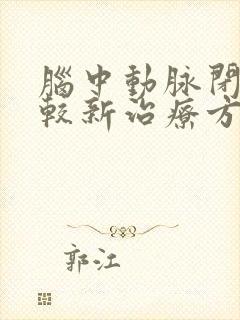 腦中動脉閉
較新治療方
郭江